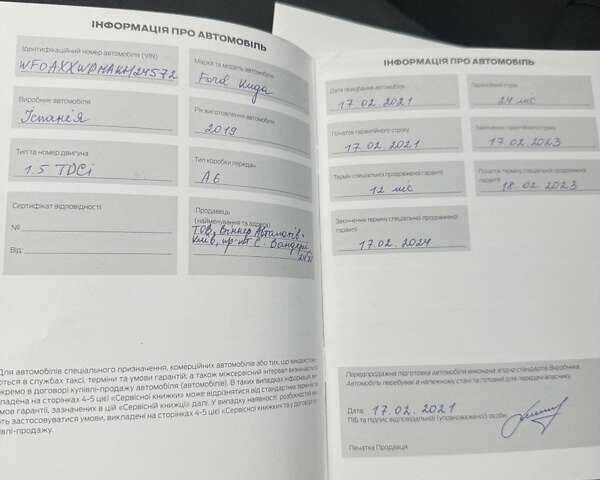 ІНФОРМАЦІЯ ПРО АВТОМОБІЛЬ
Ідентифікаційний номер автомобіля (VIN)
WF0AXXWPMAKH24572
Марка та модель автомобіля
Ford Kuga
Виробник автомобіля
Іспанія
Рік виготовлення автомобіля
2019
Тип та номер двигуна
1.5 TDCi
Тип коробки передач
А6
Сертифікат відповідності
№
Від
Продавець
(найменування та адреса)
ТОВ, Віннер Автомотів-
Київ, пр-т С. Бандери
Для автомобілів спеціального призначення, комерційних автомобілів або тих, що використову-
ються в службах таксі, терміни та умови гарантій, а також міжсервісний інтервал визначаються
окремо в договорі купівлі-продажу автомобіля (автомобілів). В таких випадках інформація
викладена на сторінках 4-5 цієї «Сервісної книжки» може відрізнятися від стандартних термінів
умов гарантії, зазначених в цій «Сервісній книжці» далі. У випадку наявності розбіжностей
ють застосовуватися умови, викладені на сторінках 4-5 цієї «Сервісної книжки» та у договорі
півлі-продажу.
ІНФОРМАЦІЯ ПРО АВТОМОБІЛЬ
Дата продажу автомобіля
17 02. 2021
Гарантійний строк
24 міс
Початок гарантійного строку
17. 02. 2021
Закінчення гарантійного строку
17. 02. 2023
Термін спеціальної продовженої
гарантії
12 міс
Початок терміну спеціальної продовженої
гарантії
18. 02. 2023
Закінчення терміну спеціальної продовженої
гарантії
17.02. 2024
Передпродажна підготовка автомобіля виконана згідно стандартів Виробника.
Автомобіль перебуває в належному стані та готовий для передачі власнику.
Дата 17. 02. 2021
ПІБ та підпис відповідальної (уповноваженої) особи
Печатка Продавця